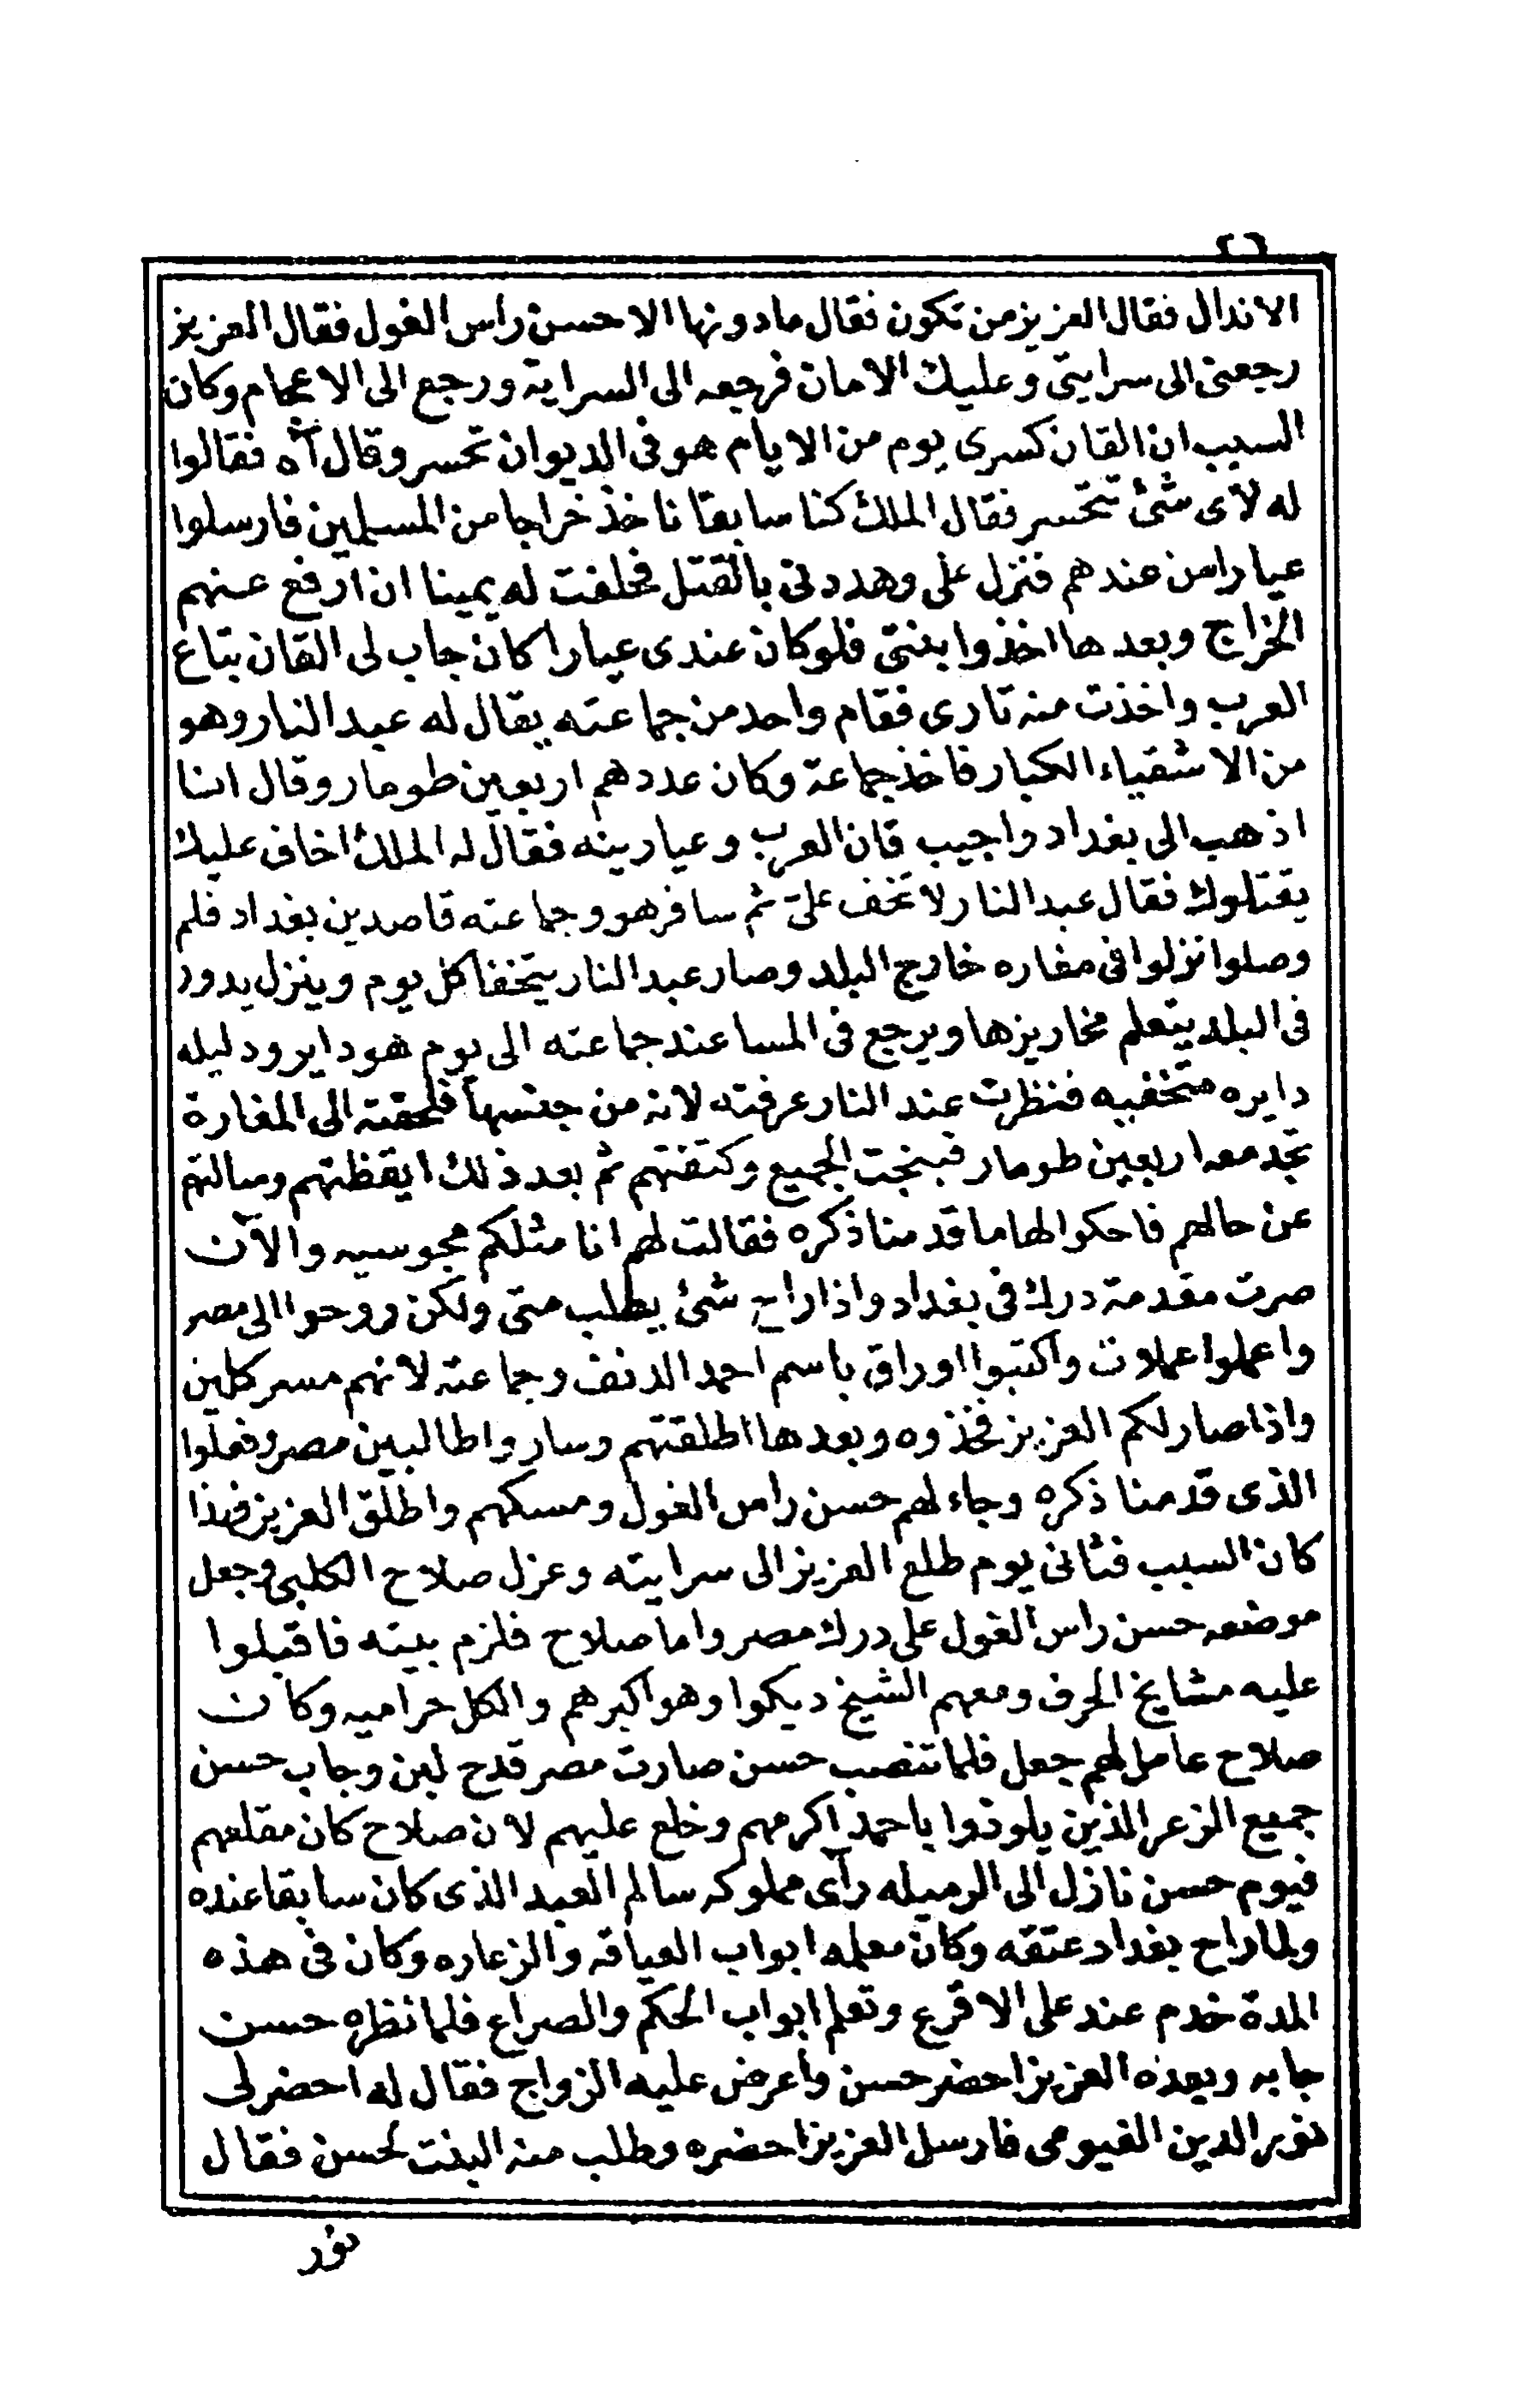 ٢٦
الاندال فقال العزيز من تكون فقال مادونها الا حسن راس الغول فقال العزيز
رجعنى الى سرايتى وعليك الامان فرجعه الى السراية ورجع الى الاعجام وكان
السبب ان القان كسرى يوم من الايام هو فى الديوان تحسر وقال آه فقالوا
له لأى شئ تتحسر فقال الملك كنا سابقا ناخذ خراجا من المسلمين فارسلوا
عيارا من عندهم فنزل على وهددنى بالقتل فحلفت له يمينا ان ارفع عنهم
الخراج وبعدها اخذوا بنتى فلوكان عندى عيارا كان جاب لى القان بتاع
العرب واخذت منه تارى فقام واحد من جماعته يقال له عبد النار وهو
من الاشقياء الكبار فاخذ جماعة وكان عددهم اربعين طومار وقال انا
اذهب الى بغداد واجيب قان العرب وعيارينه فقال له الملك اخاف عليك
يقتلوك فقال عبد النار لا تخف علىّ ثم سافر هو وجماعته قاصدين بغداد فلم
وصلوا نزلوا فى مغاره خارج البلد وصار عبد النار يتخفا كل يوم وينزل يدور
فى البلد يتعلم مخاريزها ويرجع فى المسا عند جماعته الى يوم هو داير ودليله
دايره متخفيه فنظرت عند النار عرفته لانه من جنسها فلحقته الى المغارة
تجد معه اربعين طومار فبنجت الجميع وكتفتهم ثم بعد ذلك ايقظتهم وسالتهم
عن حالهم فاحكوا لها ما قدمنا ذكره فقالت لهم انا مثلكم مجوسيه والآن
صرت مقدمة درك فى بغداد واذا راح شئ يطلب منى ولكن روحوا الى مصر
واعملوا عملات واكتبوا اوراق باسم احمد الدنف وجماعته لانهم مسركلين
واذا صار لكم العزيز فخذوه وبعدها اطلقتهم وساروا طالبين مصر وفعلوا
الذى قدمنا ذكره وجاء لهم حسن راس الغول ومسكهم واطلق العزيز فهذا
كان السبب فثانى يوم طلع العزيز الى سرايته وعزل صلاح الكلبى وجعل
موضعه حسن راس الغول على درك مصر واما صلاح فلزم بيته فاقبلوا
عليه مشايخ الحرف ومعهم الشيخ ديكوا وهو اكبرهم والكل حراميه وكان
صلاح عامل لهم جعل فلما تنصب حسن صارت مصر قدح لبن وجاب حسن
جميع الزعر الذين يلوذوا باحمد اكرمهم وخلع عليهم لان صلاح كان مقلعهم
فيوم حسن نازل الى الرميله رأى مملوكه سالم العبد الذى كان سابقا عنده
ولما راح بغداد عتقه وكان معلمه ابواب العياقه والزعاره وكان فى هذه
المدة خدم عند على الاقرع وتعلم ابواب الحكم والصراع فلما نظره حسن
جابه وبعده العزيز احضر حسن واعرض عليه الزواج فقال له احضر لى
نور الدين الفيومى فارسل العزيز احضره وطلب منه البنت لحسن فقال
نور